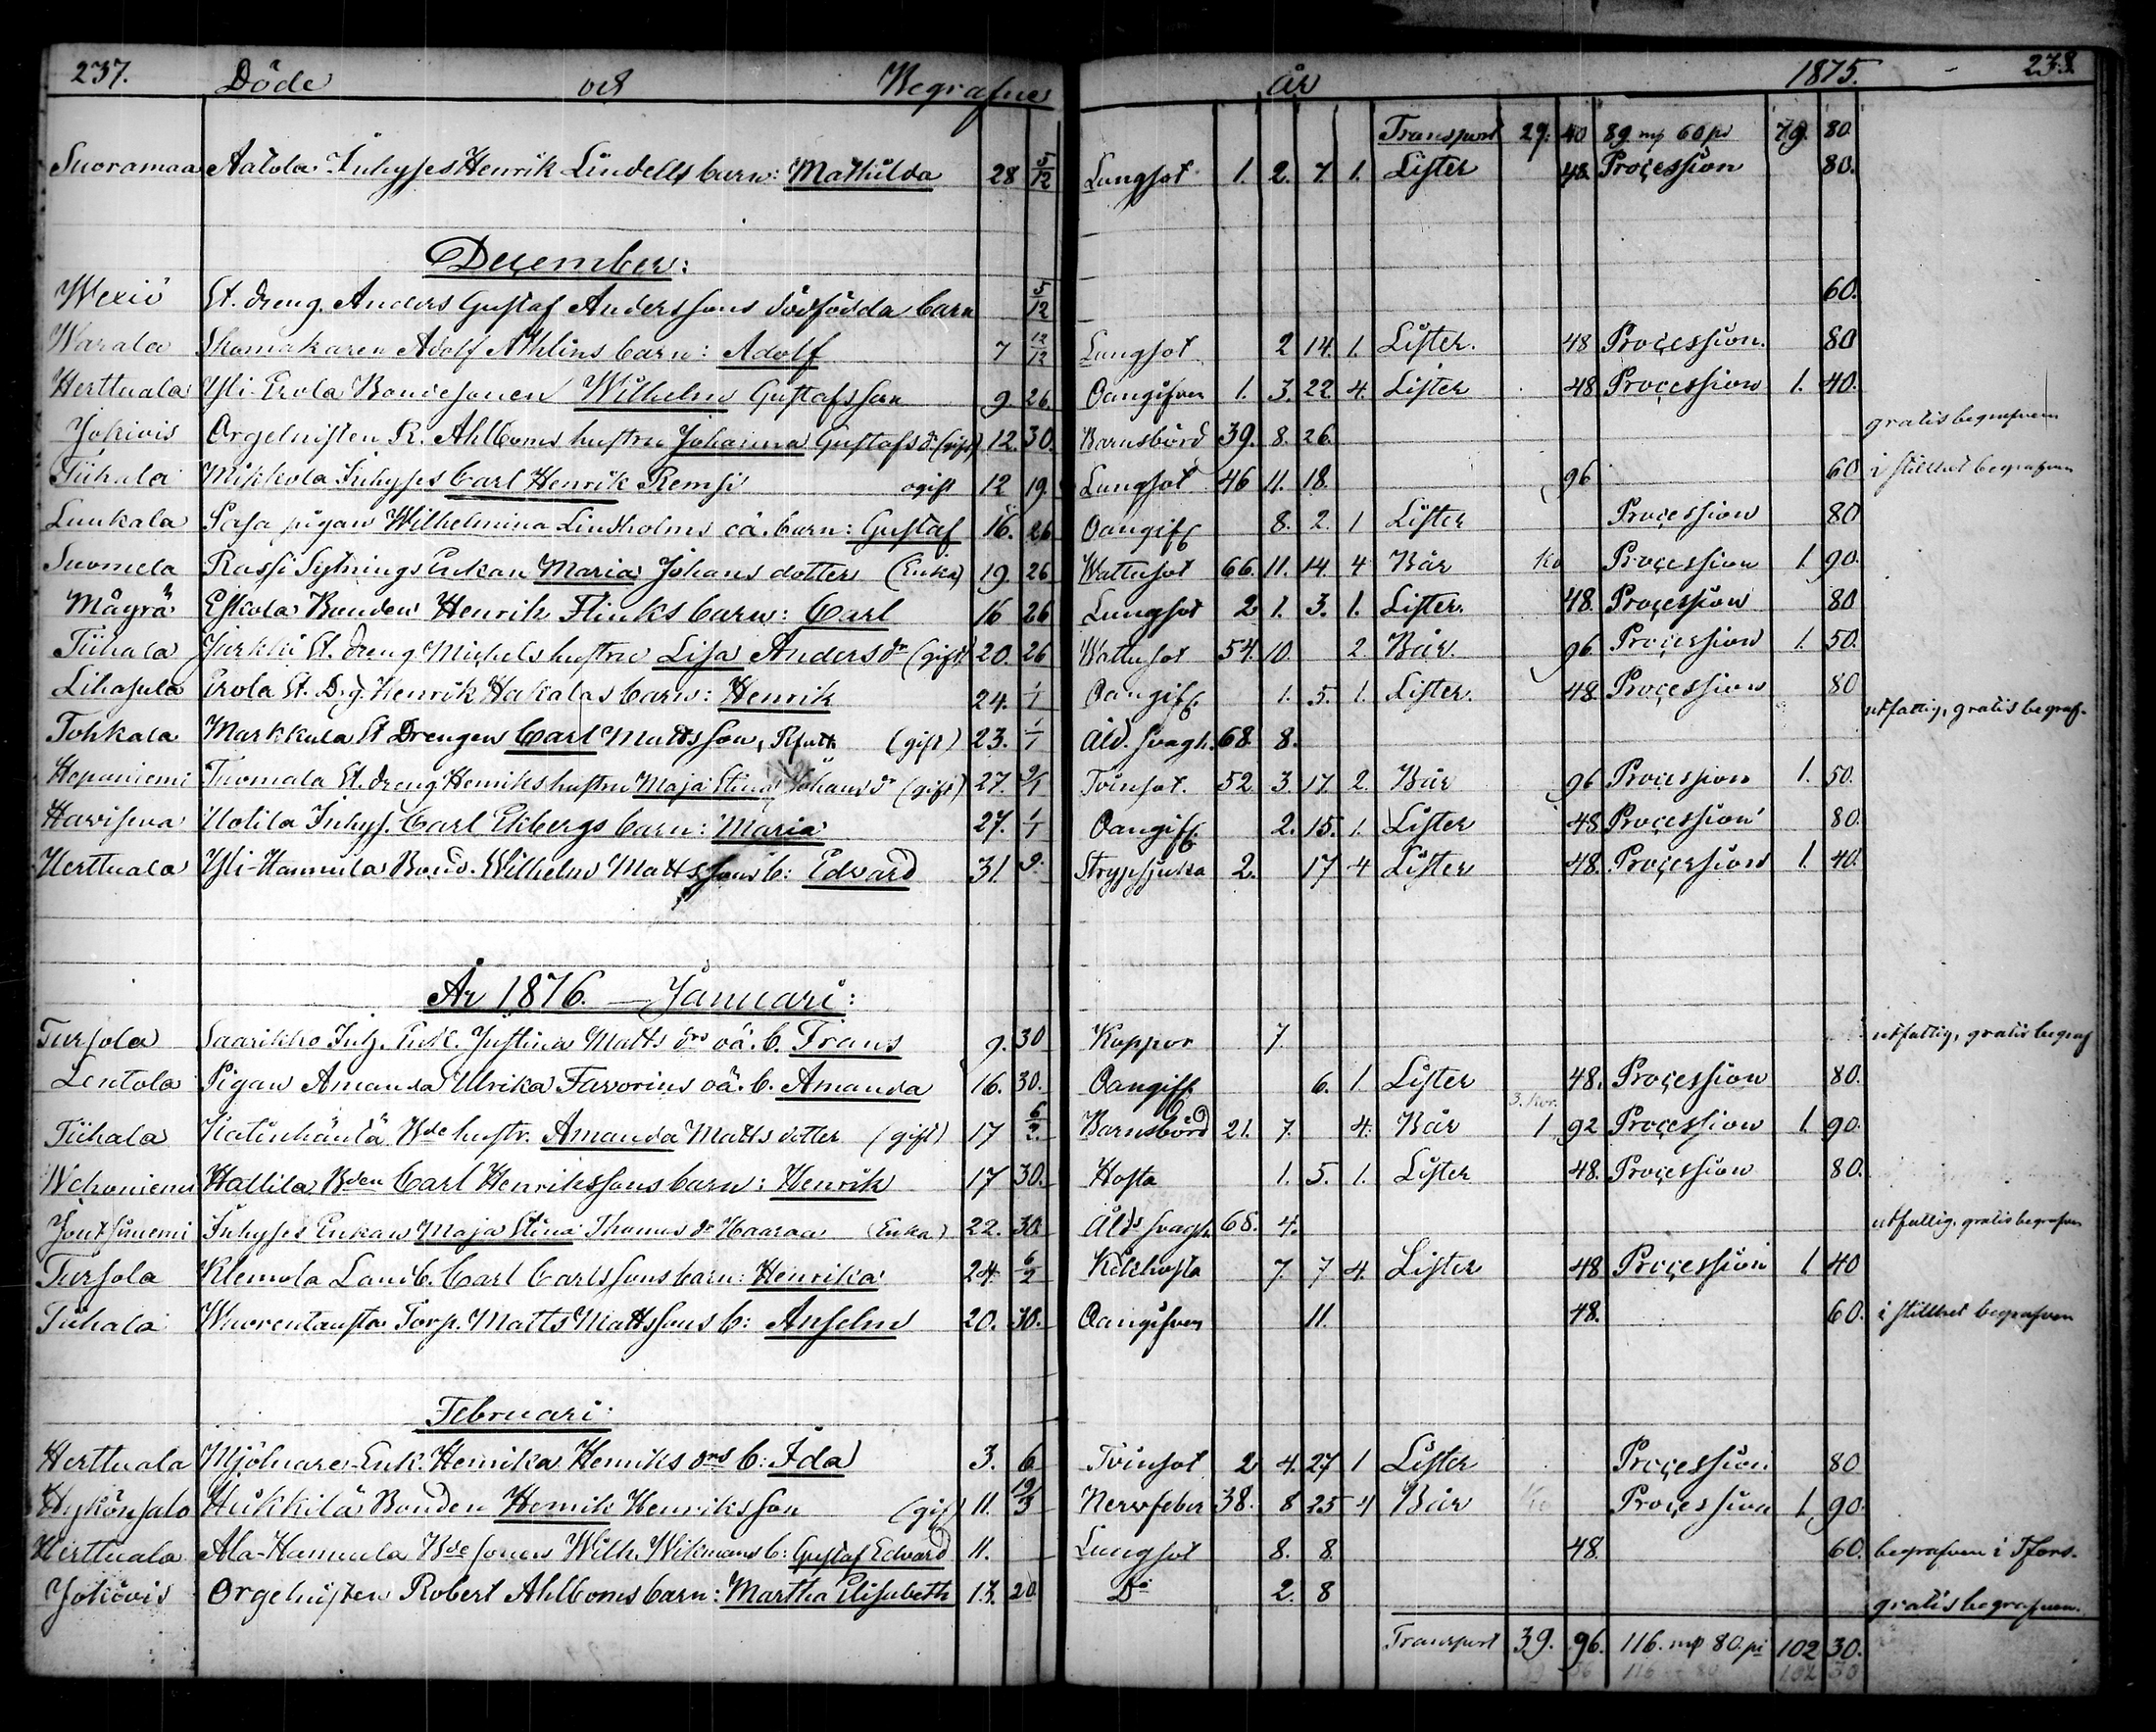 237. Döde och Begrafne år 1875. 238.
Transport 29. 40 89 mp 60 pi 79. 80
Suoramaa Aatola Inhyses Henrik Lindells barn: Mathilda 28 5/12 Lungsot 1. 2. 7. 1. Lister 48. Procession 80.
December:
Wexiö St. dreng. Anders Gustaf Anderssons dödfödda barn 5/12 60.
Warala Skomakaren Adolf Athlins barn: Adolf 7 12/12 Lungsot 2 14. 1. Lister. 48 Procession. 80
Herttuala Yli-Erola Bondesonen Wilhelm Gustafsson 9. 26. Oangifven 1. 3. 22. 4. Lister 48 Procession 1. 40.
Jokivis Orgelnisten R. Ahlboms hustru Johanna Gustafs dr (gift) 12. 30. Barnsbörd 39. 8. 26. gratis begrafven
Tiihala Mikkola Inhyses Carl Henrik Remsi ogift 12 19. Lungsot 46 11. 18. 96 60 i stillhet begrafven
Luukala Pasa pigan Wilhelmina Lindholms oä. barn: Gustaf 16. 26 Oangiff. 8. 2. 1 Lister Procession 80
Suomela Rassi Sytnings Enkan Maria Johans dotter (Enka) 19 26 Wattusot 66. 11. 14. 4 Bår Ko Procession 1. 90.
Mägrä Eskola Bonden Henrik Flinks barn: Carl 16 26 Lungsot 2 1. 3. 1. Lister. 48. Procession 80
Tiihala Jurkki St. dreng Michels hustru Lisa Anders dr (gift) 20. 26 Wattusot 54. 10. 2. Bår. 96 Procession 1. 50.
Lihasula Erola St. Dg. Henrik Hakalas barn: Henrik 24. 1/1 Oangiff. 1. 5. 1. Lister. 48. Procession 80
Tohkala Markkula St Drengen Carl Mattsson, (gift) 23. 1/1 Åld. svagh. 68. 8. utfattig, gratis begraf.
Hepaniemi Tuomala St. dreng Henriks hustru Maja Stina Johans dr (gift) 27. 9/1 Tvinsot. 52 3. 17. 2. Bår 96 Procession 1. 50.
Havisua Uotila Inhys. Carl Ekbergs barn: Maria 27. 1/1 Oangiff. 2. 15. 1. Lister 48 Procession 80.
Herttuala Yli-Hannula Bond. Wilhelm Mattssons b: Edvard 31. 9. Strypsjuka 2. 17 4 Lister 48. Procession 1. 40.
År 1876. — Januari:
Tursola Saarikko Inh. Enk. Justina Matts drs oä. b. Frans 9. 30 Koppor 7. utfattig, gratis begraf
Lentola Pigan Amanda Ulrika Favorins oä. b. Amanda 16. 30. Oangiff. 6. 1. Lister 48. Procession 80.
Tiihala Katinhäntä Bde hustr. Amanda Matts dotter (gift) 17 6/2. Barnsbörd 21. 7. 4. Bår 3. Kor. 1 92 Procession 1. 90.
Wehoniemi Hallila Bden Carl Henrikssons barn: Henrik 17 30. Hosta 1. 5. 1. Lister 48. Procession 80.
Joutsiniemi Inhyses Enkan Maja Stina Thomas dr Haaraa (Enka) 22. 30. Åld. svagh. 68. 4. utfattig, gratis begrafven
Tursola Klemola Landb. Carl Carlssons barn: Henrika 24 6/2 Kikhosta 7. 7 4. Lister 48 Procession 1. 40
Tiihala Wuorentausta Torp. Matts Mattssons b: Anselm 20. 30. Oangifven 11. 48. 60. i stillhet begrafven
Februari:
Herttuala Mjölnare-Enk. Henrika Henriks drs b: Ida 3. 6 Tvinsot 2 4. 27 1 Lister Procession 80
Hyköinsalo Hükkilä Bonden Henrik Henriksson (gift) 11. 19/3 Nervfeber 38. 8 25 4 Bår Ko Procession 1. 90.
Herttuala Ala-Hannula Bdesonen Wilh. Wikmans b: Gustaf Edvard 11. Lungsot 8. 8. 48. 60. begrafven i Tfors.
Jokivis Orgelnisten Robert Ahlboms barn: Martha Elisabeth 13. 20. Do 2. 8 gratis begrafven.
Transport 39. 96. 116. mp 80. pi 102 30.
116 80 102 30